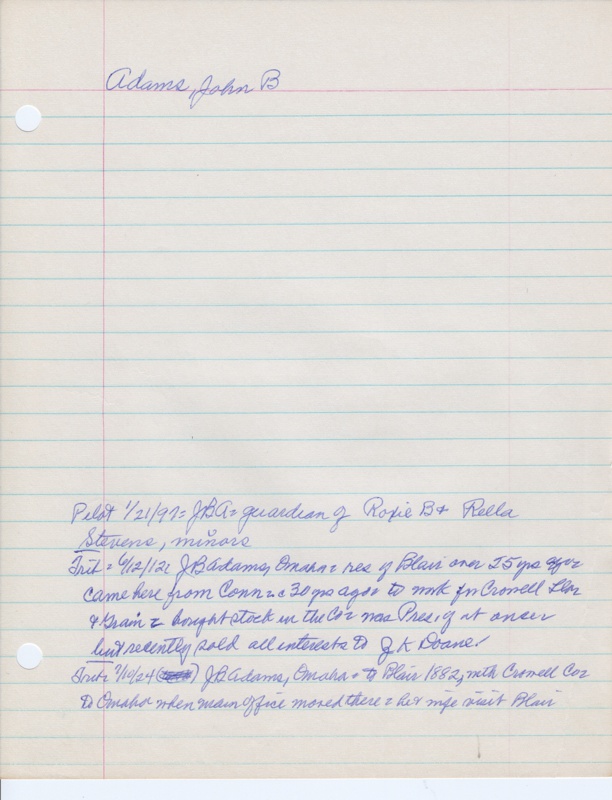 Adams, John B
Pilot 1/21/97 = JBA = guardian of Roxie B & Rella
Stevens, minors
Trib = 6/12/12 JB Adams, Omaha = res of Blair over 25 yrs
came here from Conn = c 30 yrs ago = to work for Crowell Lbr
& Grain = bought stock in the Co = was Pres of at once
but recently sold all interests to J K Doane
Trib = 7/10/24 J B Adams, Omaha = to Blair 1882, with Crowell Co =
to Omaha when main office moved there = he & wife visit Blair